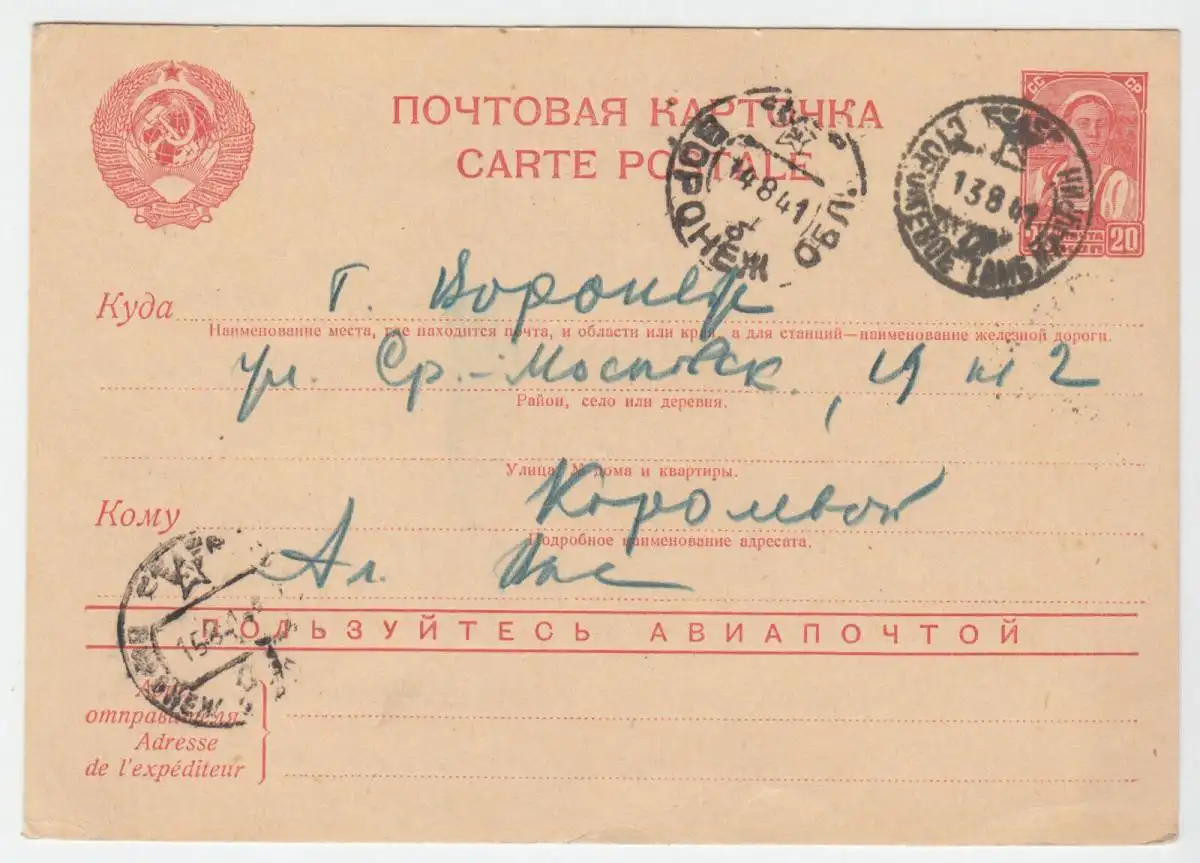 ПОЧТОВАЯ КАРТОЧКА
CARTE POSTALE
СС СР
ПОЧТА
20
ВОРОНЕЖ ОБЛ.
14 8 41
13 8 41
Куда г. Воронеж
Наименование места, где находится почта, и области или края, а для станций—наименование железной дороги.
ул. Ср.-Московск, 19 кв 2
Район, село или деревня.
Улица, № дома и квартиры.
Кому Королевой
Подробное наименование адресата.
Ал. Вас
ПОЛЬЗУЙТЕСЬ АВИАПОЧТОЙ
Адрес
отправителя
Adresse
de l'expéditeur